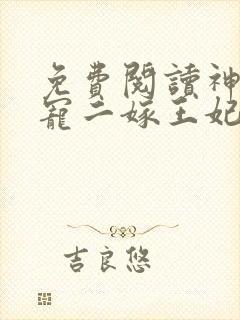 免費閱讀神
寵二嫁王妃
吉良悠